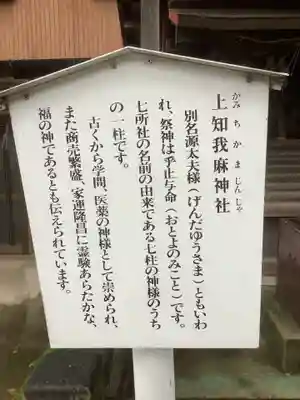 かみちかまじんじゃ
上知我麻神社
別名源太夫様（げんだゆうさま）ともいわ
れ、祭神は乎止与命（おとよのみこと）です。
七所社の名前の由来である七柱の神様のうち
の一柱です。
古くから学問、医薬の神様として崇められ、
また商売繁盛、家運隆昌に霊験あらたかな、
福の神であるとも伝えられています。